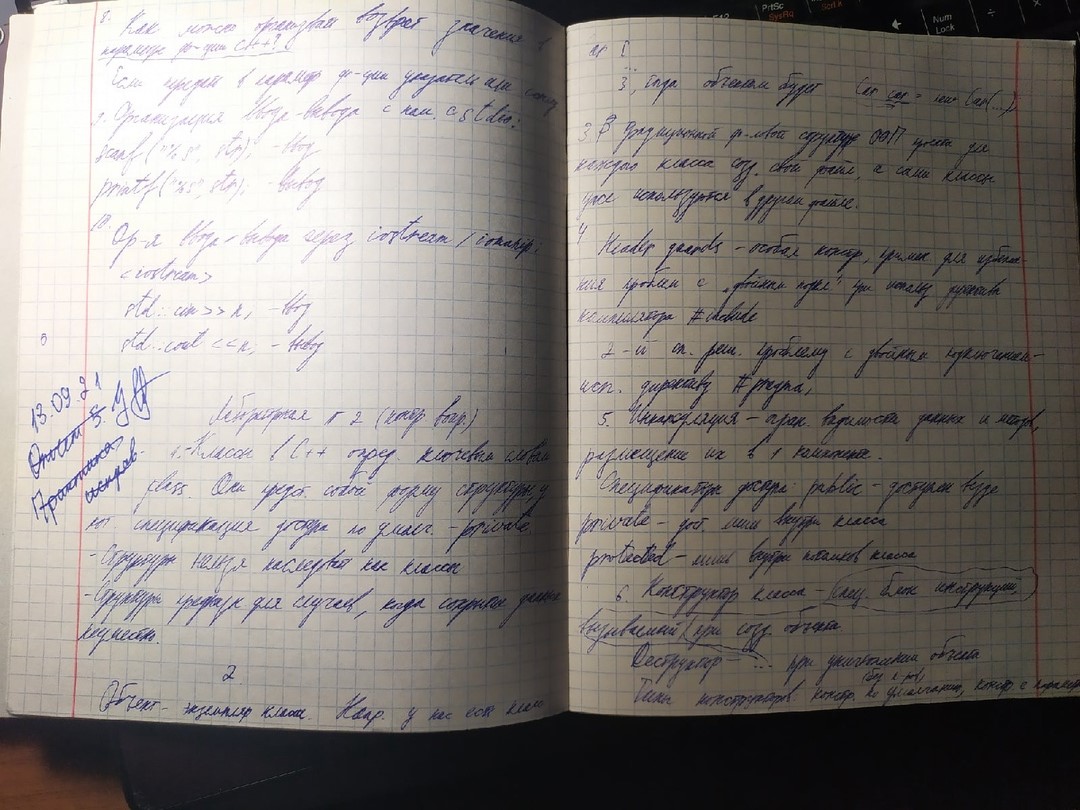 8. Как можно организовать возврат значения в
параметр ф-ции C++?
Если передать в параметр ф-ции указатель или ссылку
9. Организация ввода-вывода с пом. cstdio:
scanf("%s", str); - ввод
printf("%s", str); - вывод
10.
Ор-я ввода-вывода через iostream / iomanip:
<iostream>
std::cin >> n; - ввод
std::cout << n; - вывод
13.09.21
Отчет 5.
Практика
исправ.
Лабораторная n 2 (контр вопр.)
1. Классы в C++ опред. ключевым словом
class. Они предст. собой форму структуры, у
кот спецификация доступа по умолч. - private.
- Структуры нельзя наследовать как классы
- Структуры предназн для случаев, когда сокрытие данных
неуместно.
2.
Объект - экземпляр класса. Напр. у нас есть класс
Car {
...
}, тогда объектом будет Car car = new Car(...)
3. В традиционной ф-ловой структуре ООП проекта для
каждого класса созд. свой файл, а сами классы
уже используются в другом файле.
4
Header guards - особая констр, примен. для избежа-
ния проблем с "двойным подкл" при использ директивы
компилятора #include
2-й сп. реш. проблему с двойным подключением -
исп. директиву #pragma,
5. Инкапсуляция - огран. видимости данных и методов,
размещение их в 1 компоненте.
Спецификаторы доступа: public - доступен везде
private - дост. лишь внутри класса
protected - лишь внутри потомков класса
6. Конструктор класса - спец. блок инструкций,
вызываемый при созд. объекта
Деструктор - ... при уничтожении объекта
Типы конструкторов: констр. по умолчанию, констр с параметр